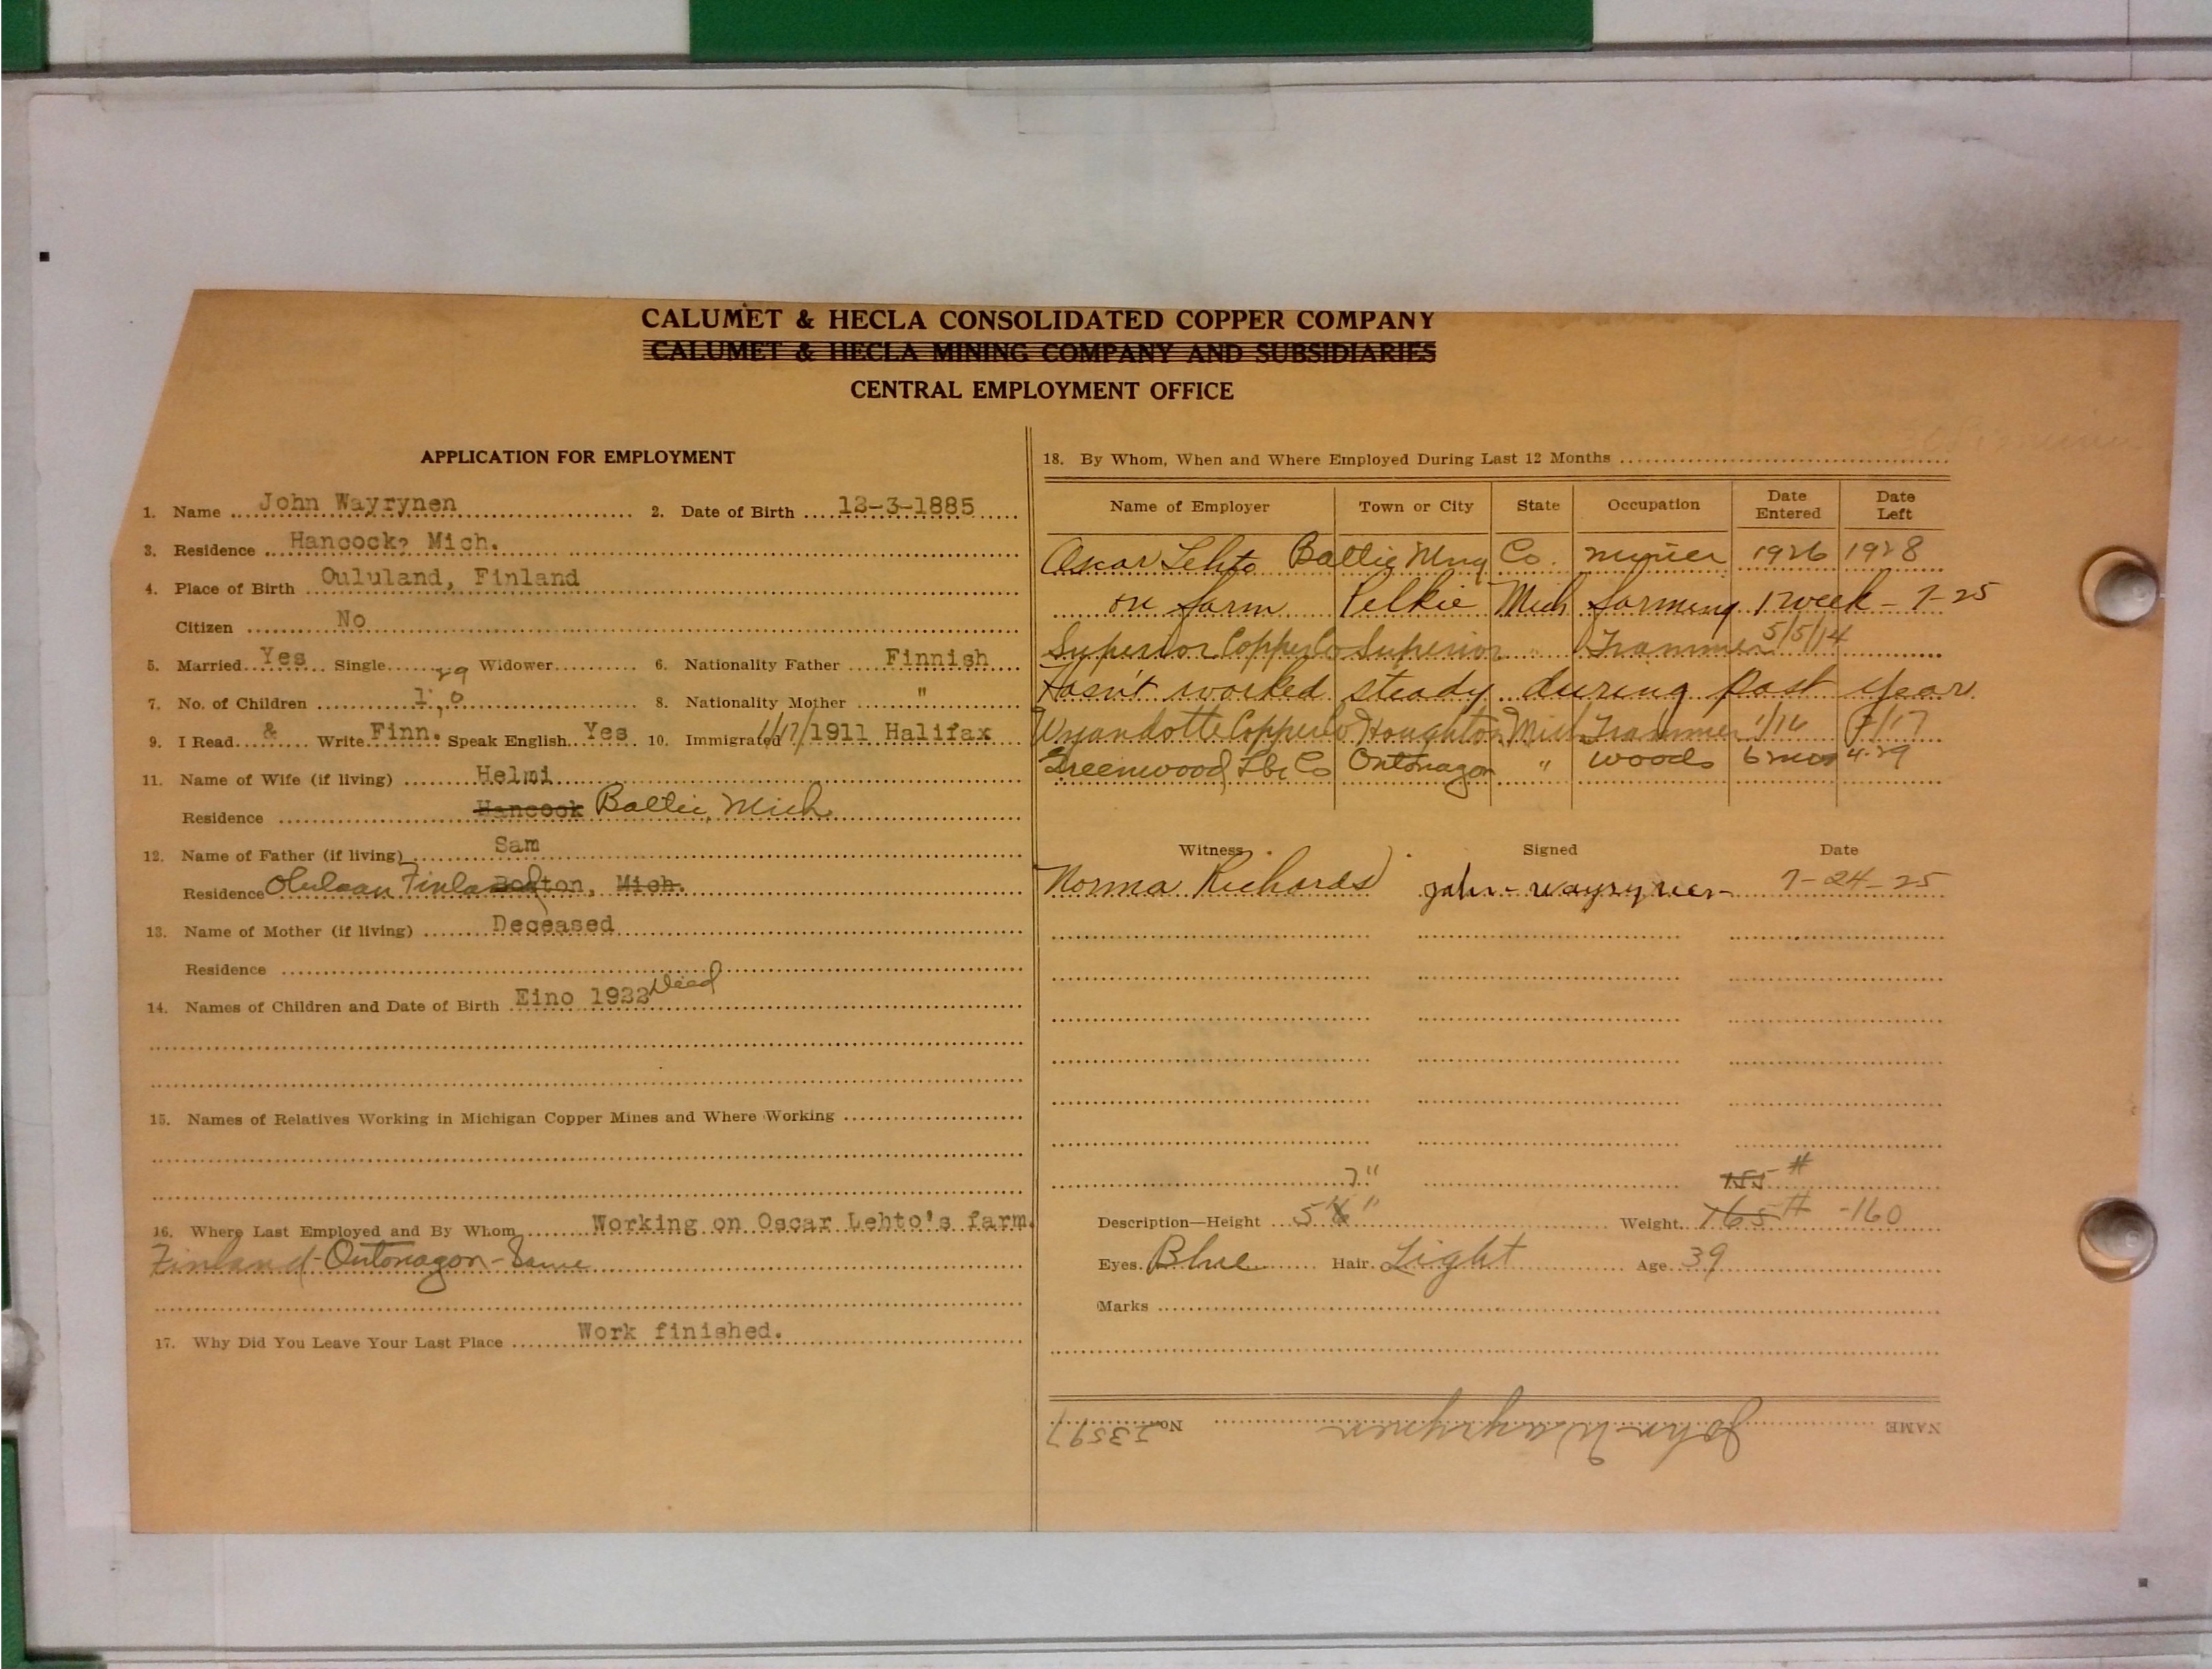 CALUMET & HECLA CONSOLIDATED COPPER COMPANY
CALUMET & HECLA MINING COMPANY AND SUBSIDIARIES
CENTRAL EMPLOYMENT OFFICE
APPLICATION FOR EMPLOYMENT
1. Name John Wayrynen 2. Date of Birth 12-3-1885
3. Residence Hancock, Mich.
4. Place of Birth Oululand, Finland
Citizen No
5. Married Yes Single Widower 6. Nationality Father Finnish
29
7. No. of Children 1, 0 8. Nationality Mother "
9. I Read & Write Finn. Speak English Yes 10. Immigrated 1/17/1911 Halifax
11. Name of Wife (if living) Helmi
Residence Hancock Baltic, Mich
12. Name of Father (if living) Sam
Residence Finland Mich.
13. Name of Mother (if living) Deceased
Residence
14. Names of Children and Date of Birth Eino 1922 Died
15. Names of Relatives Working in Michigan Copper Mines and Where Working
16. Where Last Employed and By Whom Working on Oscar Lehto's farm.
Finland - Ontonagon - Same
17. Why Did You Leave Your Last Place Work finished.
18. By Whom, When and Where Employed During Last 12 Months
Name of Employer Town or City State Occupation Date Entered Date Left
Oscar Lehto Baltic Mng Co. 1926 1928
on farm Pelkie Mich farming 1 week - 7-25
Superior Copper Co Superior " Trammer 5/5/14
Hasn't worked steady during past year
Wyandotte Copper Co Houghton Mich Trammer 1/16 /17
Greenwood Lbr Co Ontonagon " woods 6 mos 4-29
Witness Signed Date
Norma Richards john - wayrynen - 7-24-25
7"
155 #
Description—Height 5 8" Weight 165 # -160
Eyes Blue Hair Light Age 39
Marks
NAME John Wayrynen No. 13597